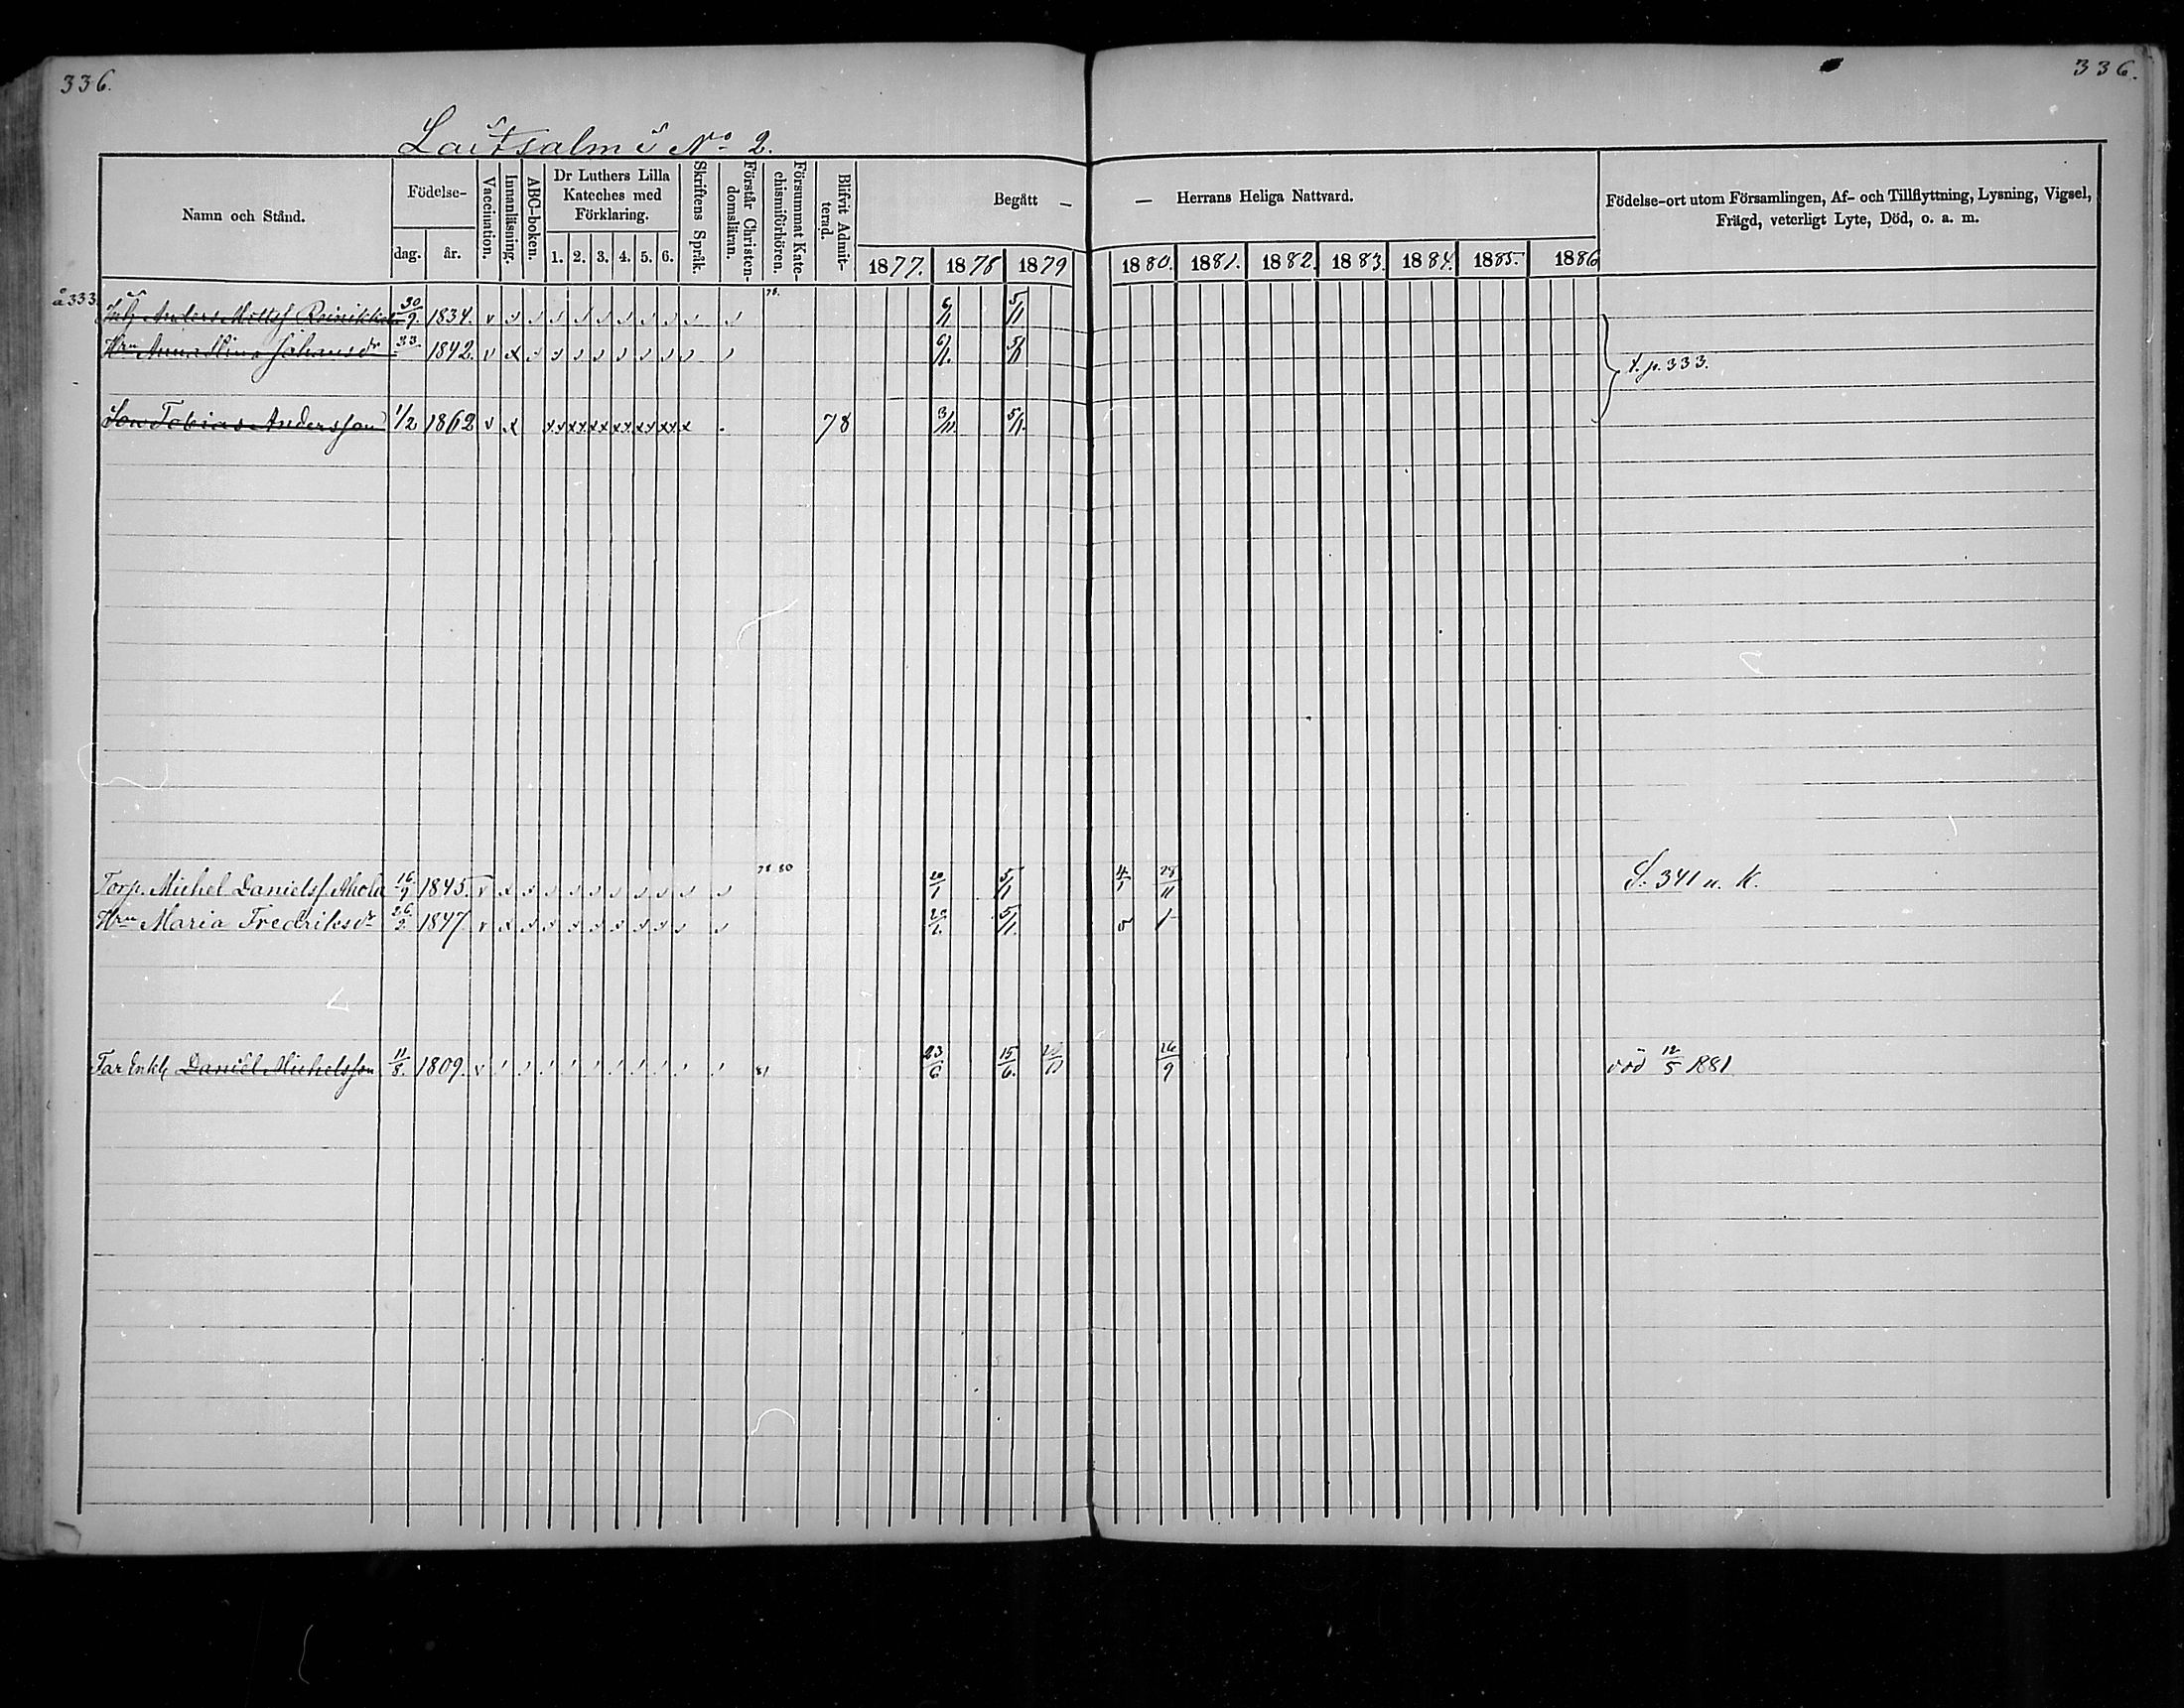 336.
336.
Laitsalmi No 2.
Namn och Stånd.
Födelse-
dag.
år.
Vaccination.
Innanläsning.
ABC-boken.
Dr Luthers Lilla
Kateches med
Förklaring.
1. 2. 3. 4. 5. 6.
Skriftens Språk.
Förstår Christen-
domsläran.
Försummat Kate-
chismiförhören.
Blifvit Admit-
terad.
Begått — — Herrans Heliga Nattvard.
1877. 1878 1879 1880. 1881. 1882. 1883. 1884. 1885. 1886
Födelse-ort utom Församlingen, Af- och Tillflyttning, Lysning, Vigsel,
Frägd, veterligt Lyte, Död, o. a. m.
å 333 Anders Reinikka 30/9. 1834. v 78. 6/1 5/1
Hrn Anna Johansdr 1842. v x 6/1. 5/1
t. p. 333.
Son Tobias Andersson 1/2 1862 v x 78 3/11. 5/1.
Torp. Michel Danielsf. Ahola 16/9 1845. v x 78 80 20/1 5/1 4/1 28/11 S. 341 n. K.
Hrn Maria Fredriksdr 26/2 1847. v x 20/1. 5/1.
Far Enkl Daniel Michelsson 11/8. 1809. v 81 23/6 15/6. 26/9 död 12/5 1881